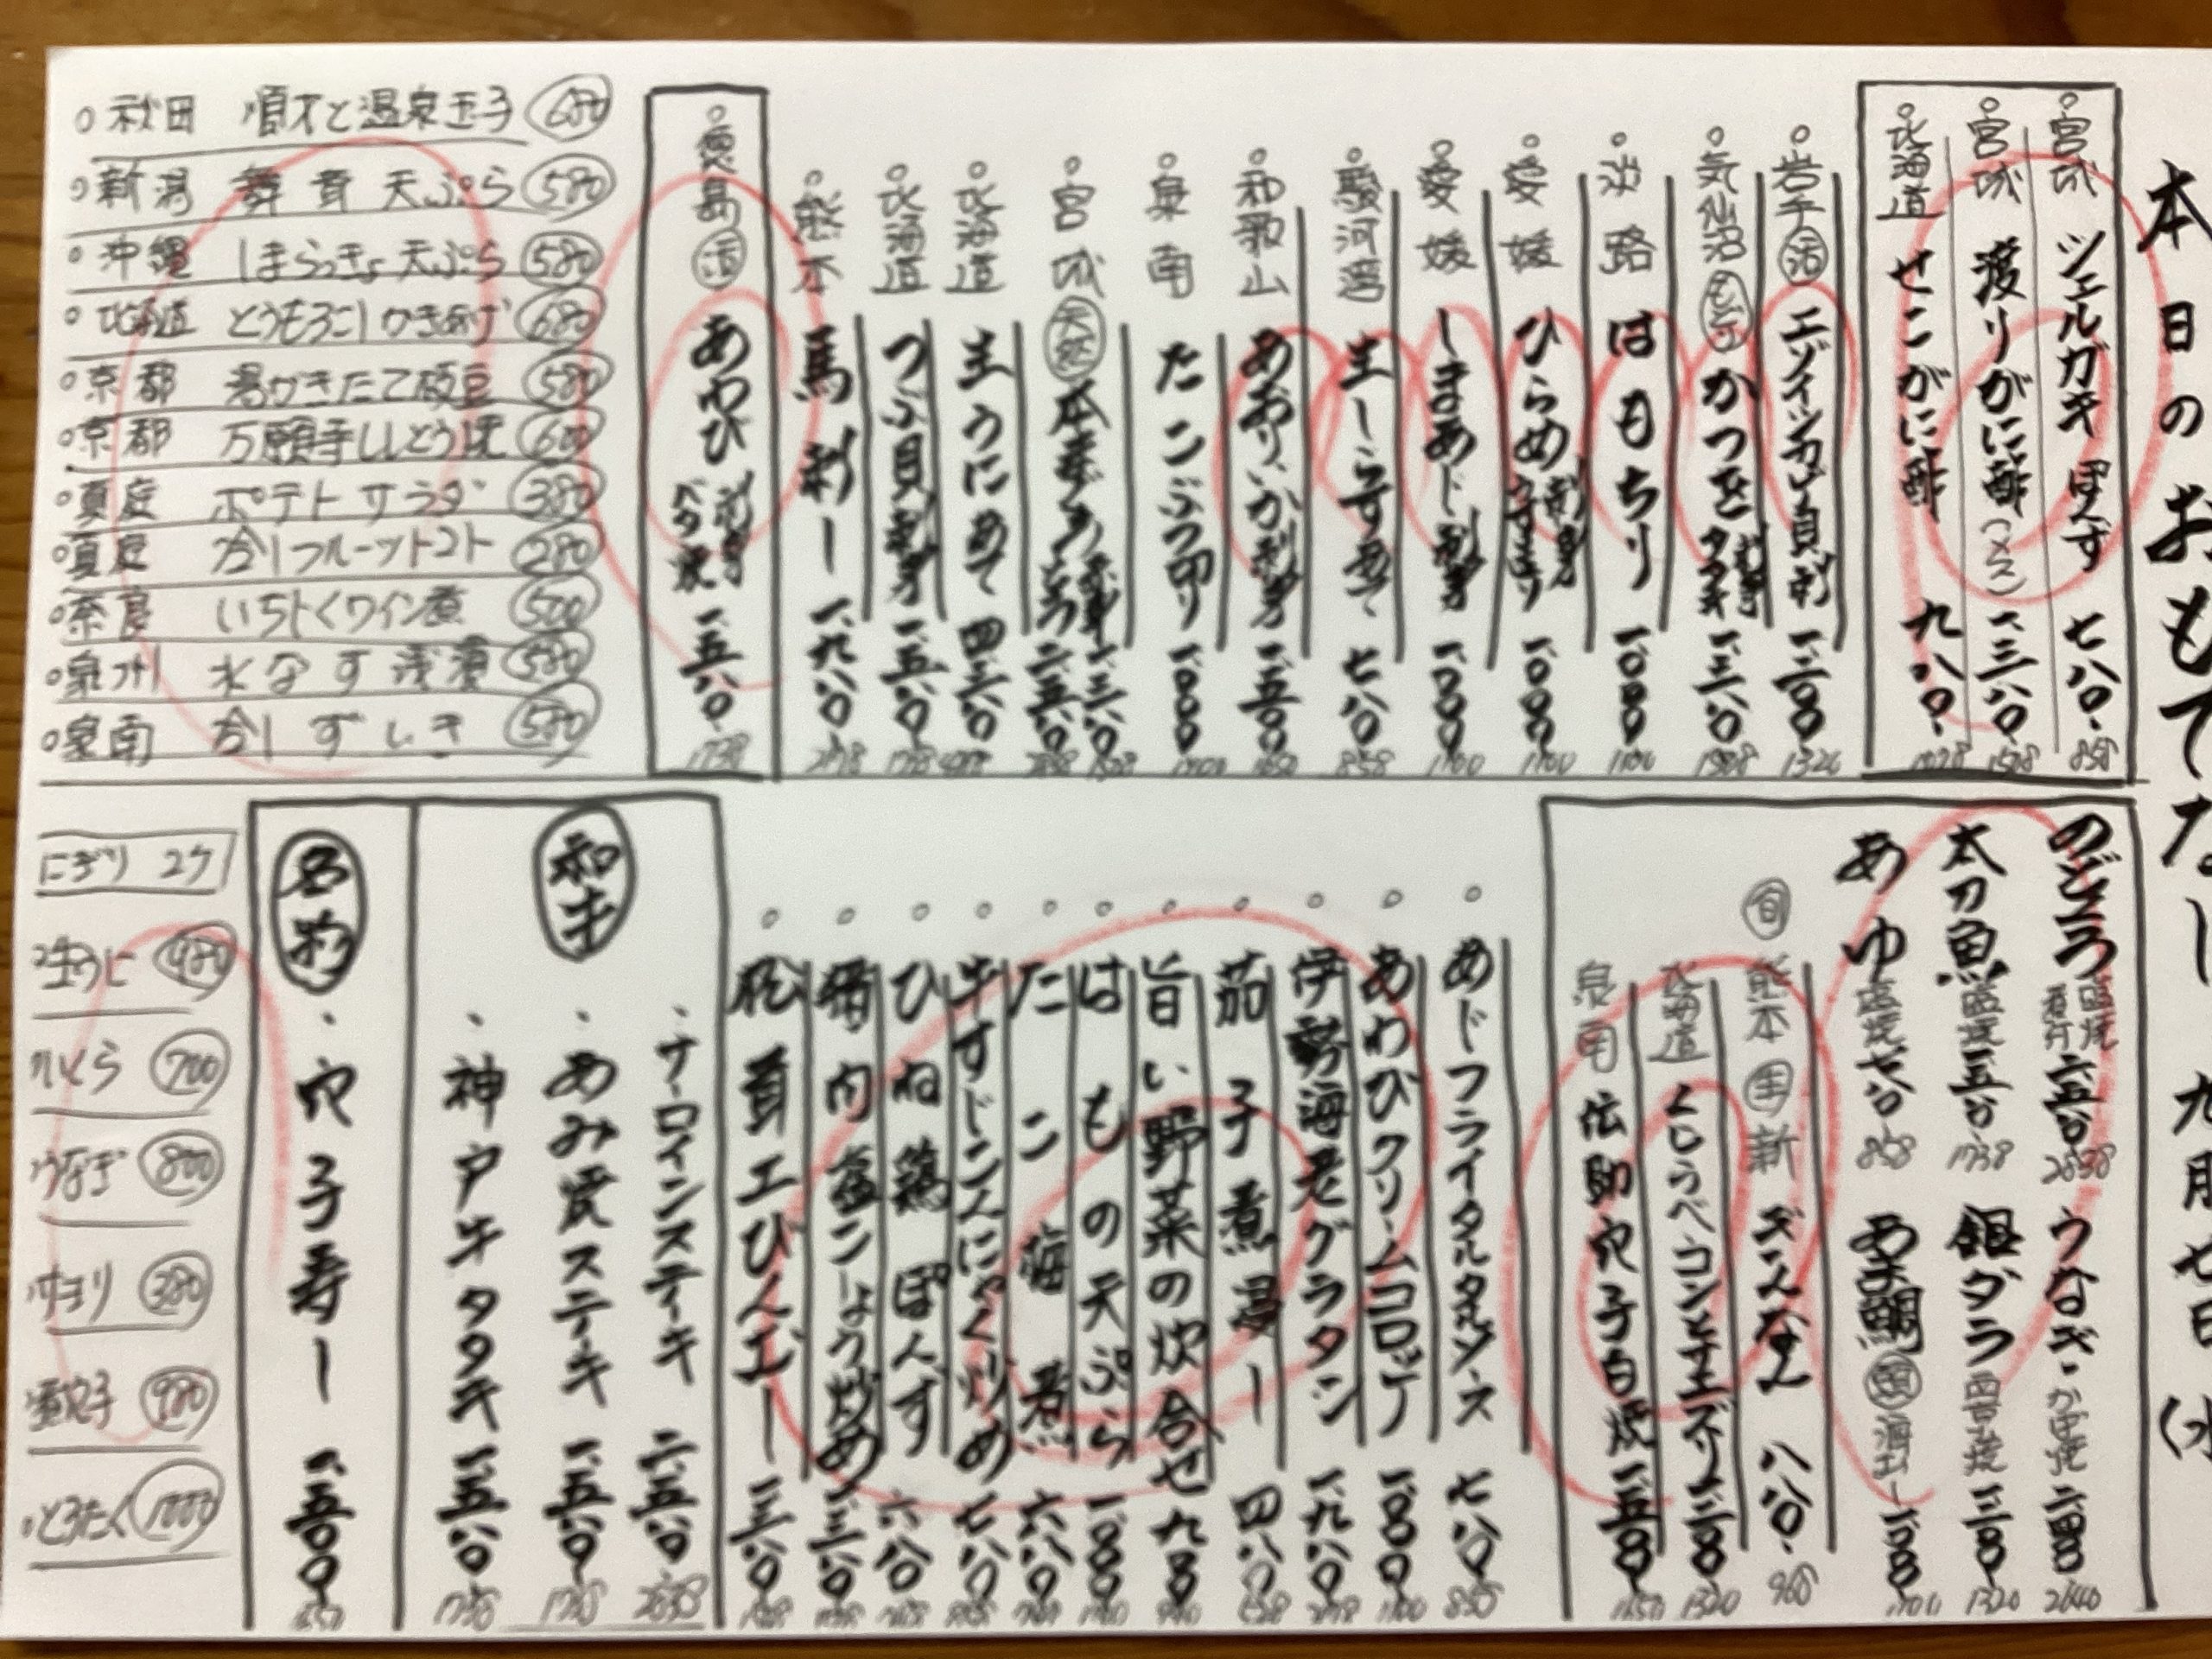 本日のおもてなし 九月七日(水
宮城 シェルガキ ぽんず 七八〇 858
宮城 渡りがに酢(メス) 一、三八〇 1518
北海道 せこがに酢 九八〇 1078
岩手 活 エゾイシカゲ貝刺 一、二〇〇 1320
気仙沼 もどり かつを タタキ 一、三八〇 1518
淡路 はもちり 一、〇〇〇 1100
愛媛 ひらめ 刺身 うす造り 一、〇〇〇 1100
愛媛 しまあじ刺身 一、〇〇〇 1100
駿河湾 生しらすあて 七八〇 858
和歌山 あおりいか刺身 一、五〇〇 1650
泉南 たこぶつ切り 一、〇〇〇
宮城 天然 本まぐろ 赤身 一、三八〇 とろ 二、五八〇
北海道 生うにあて 四、三八〇
北海道 つぶ貝刺身 一、五八〇 1738
熊本 馬刺し 一、九八〇 2178
徳島 活 あわび 刺身 バタ焼 一、五八〇 1738
秋田 順才と温泉玉子 680
新潟 舞茸天ぷら 580
沖縄 しまらっきょ天ぷら 580
北海道 とうもろこしかきあげ 680
京都 湯がきたて枝豆 580
京都 万願寺ししとう焼 600
真庭 ポテトサラダ 380
真庭 冷しフルーツトマト 280
奈良 いちじくワイン煮 500
泉州 水なす浅漬 580
泉南 冷しずいき 580
のどぐろ 塩焼 煮付 二、五八〇 2838
うなぎ かば焼 二、四〇〇 2640
太刀魚 塩焼 一、五八〇 1738
銀ダラ 西京焼 一、二〇〇 1320
あゆ 塩焼 七八〇 858
あま鯛 頭 酒蒸し 一、〇〇〇
旬 熊本 新 ぎんなん 八八〇 968
北海道 くじらベーコンとさえずり 一、二〇〇 1320
泉南 伝助穴子白焼 一、五〇〇 1650
あじフライタルタルソース 七八〇 858
あわびクリームコロッケ 一、〇〇〇 1100
伊勢海老グラタン 一、九八〇 2178
茄子煮浸し 四八〇 528
旨い野菜の炊合せ 九〇〇 990
はもの天ぷら 一、〇〇〇 1100
たこ梅煮 六八〇
牛すじこんにゃく炒め 七八〇 858
ひね鶏ぽんず 六八〇
豚肉塩こしょう炒め
松茸土びん蒸し 一、三八〇
和牛
サーロインステーキ 二、五八〇 2838
あみ焼ステーキ 一、五八〇 1738
神戸牛タタキ 一、五八〇 1738
名物
穴子寿し 一、五〇〇 1650
にぎり 2ケ
生うに 980
いくら 700
うなぎ 800
サヨリ 380
煮穴子 980
とろたく 1000